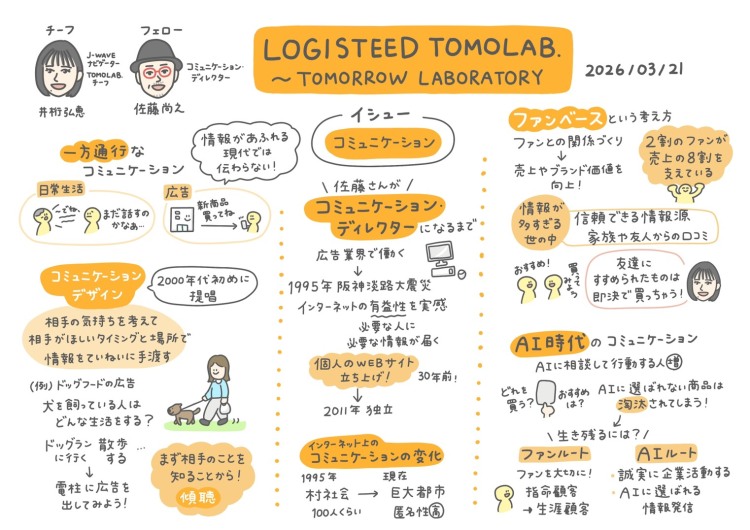 チーフ
J-WAVE
ナビゲーター
TOMOLAB.
チーフ
井桁弘恵
フェロー
コミュニケーション・
ディレクター
佐藤尚之
LOGISTEED TOMOLAB.
～TOMORROW LABORATORY
2026/03/21
一方通行な
コミュニケーション
情報があふれる
現代では
伝わらない!
日常生活
〜でね、
まだ話すの
かなぁ…
広告
新商品
買ってね
コミュニケーション
デザイン
2000年代初めに
提唱
相手の気持ちを考えて
相手がほしいタイミングと場所で
情報をていねいに手渡す
(例)ドッグフードの広告
犬を飼っている人は
どんな生活をする?
ドッグラン 散歩 …
に行く する
↓
電柱に広告を
出してみよう!
まず相手のことを
知ることから!
傾聴
イシュー
コミュニケーション
\ 佐藤さんが /
コミュニケーション・
ディレクターになるまで
広告業界で働く
↓
1995年 阪神淡路大震災
インターネットの有益性を実感
必要な人に
必要な情報が届く
↓
個人のWEBサイト
立ち上げ!
30年前!
↓
2011年 独立
インターネット上の
コミュニケーションの変化
1995年 現在
村社会 → 巨大都市
100人くらい 匿名性高
ファンベースという考え方
ファンとの関係づくり
↓
売上やブランド価値を
向上!
2割のファンが
売上の8割を
支えている
情報が
多すぎる
世の中
信頼できる情報源
家族や友人からの口コミ
おすすめ!
買ってみよう
友達に
すすめられたものは
即決で買っちゃう!
AI時代のコミュニケーション
AIに相談して行動する人増
どれを
買う?
おすすめ
は?
AIに選ばれない商品は
淘汰されてしまう!
\ 生き残るには? /
ファンルート
ファンを大切に!
指命顧客
→生涯顧客
AIルート
・誠実に企業活動する
・AIに選ばれる
情報発信